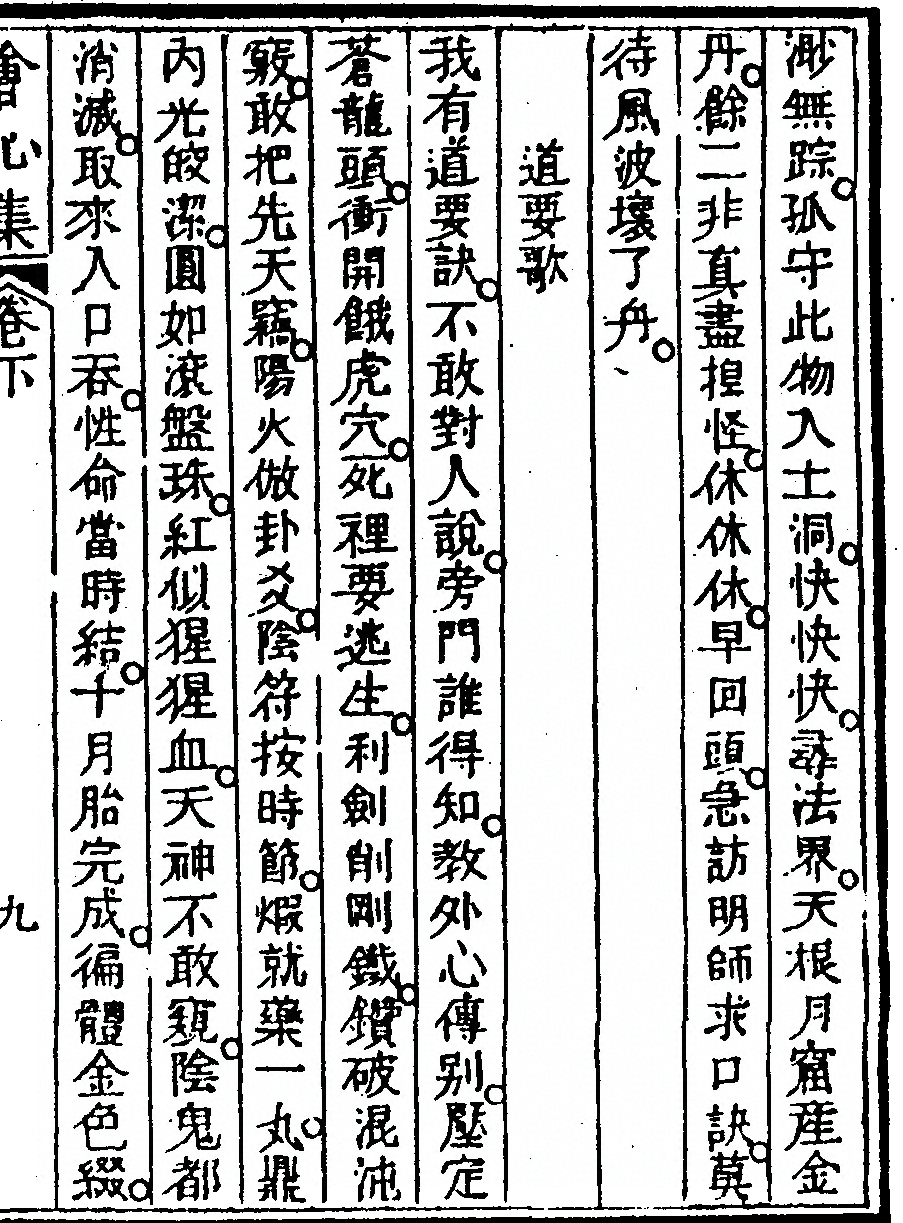 渺無踪。孤守此物入土洞。快快快。尋法界。天根月窟産金
丹。餘二非真盡捏怪。休休休。早回頭。急訪明師求口訣。莫
待風波壞了舟。
道要歌
我有道要訣。不敢對人說。旁門誰得知。教外心傳别。壓定
蒼龍頭。衝開餓虎穴。死裡要逃生。利劍削剛鐵。鑽破混沌
竅。敢把先天竊。陽火倣卦爻。陰符按時節。煆就藥一丸。鼎
内光皎潔。圓如滾盤珠。紅似猩猩血。天神不敢窺。陰鬼都
消滅。取來入口吞。性命當時結。十月胎完成。徧體金色綴。
會心集 卷下 九